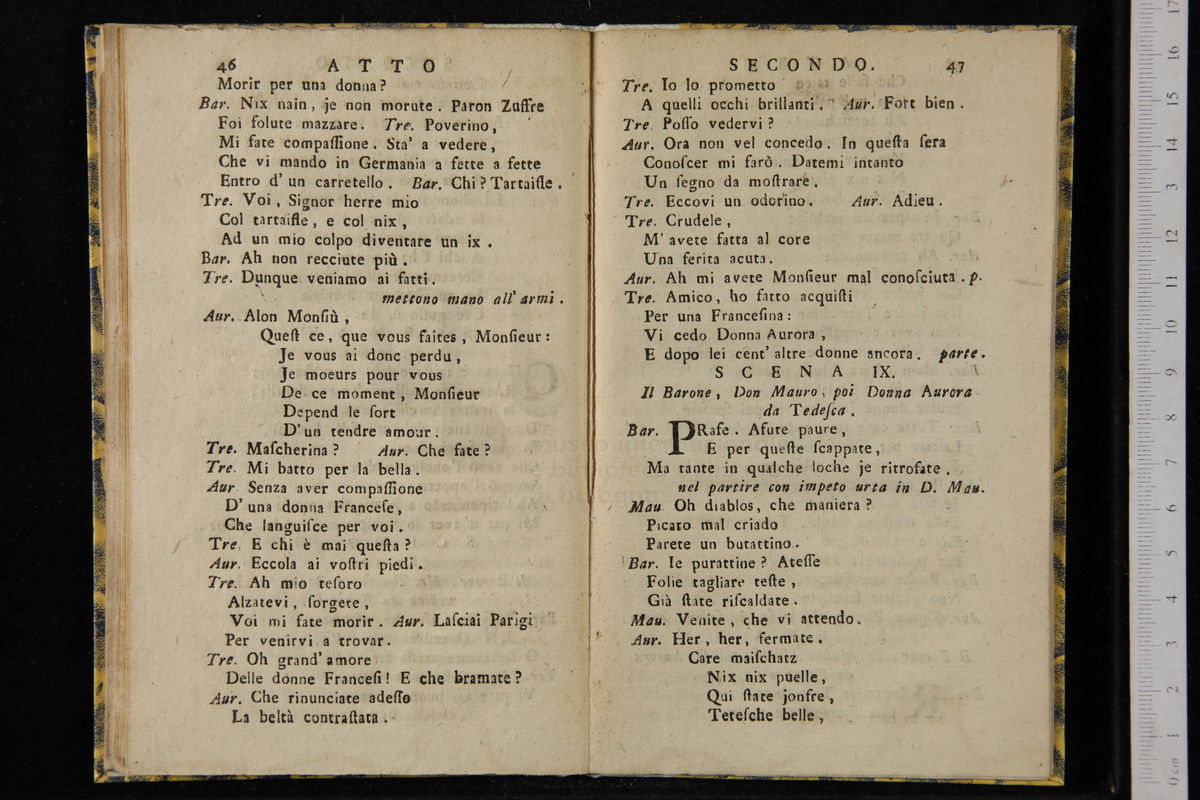 46 ATTO
Morir per una donna?
Bar. Nix nain, je non morute. Paron Zuffre
Foi folute mazzare. Tre. Poverino,
Mi fate compaſſione. Sta' a vedere,
Che vi mando in Germania a fette a fette
Entro d' un carretello. Bar. Chi? Tartaifle.
Tre. Voi, Signor herre mio
Col tartaifle, e col nix,
Ad un mio colpo diventare un ix.
Bar. Ah non recciute più.
Tre. Dunque veniamo ai fatti.
mettono mano all' armi.
Aur. Alon Monſiù,
Queſt ce, que vous faites, Monſieur:
Je vous ai donc perdu,
Je moeurs pour vous
De ce moment, Monſieur
Depend le ſort
D'un tendre amour.
Tre. Maſcherina? Aur. Che fate?
Tre. Mi batto per la bella.
Aur. Senza aver compaſſione
D' una donna Franceſe,
Che languiſce per voi.
Tre. E chi è mai queſta?
Aur. Eccola ai voſtri piedi.
Tre. Ah mio teſoro
Alzatevi, ſorgete,
Voi mi fate morir. Aur. Laſciai Parigi
Per venirvi a trovar.
Tre. Oh grand' amore
Delle donne Franceſi! E che bramate?
Aur. Che rinunciate adeſſo
La beltà contraſtata.
SECONDO. 47
Tre. Io lo prometto
A quelli occhi brillanti. Aur. Fort bien.
Tre. Poſſo vedervi?
Aur. Ora non vel concedo. In queſta ſera
Conoſcer mi farò. Datemi intanto
Un ſegno da moſtrare.
Tre. Eccovi un odorino. Aur. Adieu.
Tre. Crudele,
M' avete fatta al core
Una ferita acuta.
Aur. Ah mi avete Monſieur mal conoſciuta. p.
Tre. Amico, ho fatto acquiſti
Per una Franceſina:
Vi cedo Donna Aurora,
E dopo lei cent' altre donne ancora. parte.
SCENA IX.
Il Barone, Don Mauro, poi Donna Aurora
da Tedeſca.
Bar. PRafe. Afute paure,
E per queſte ſcappate,
Ma tante in qualche loche je ritrofate.
nel partire con impeto urta in D. Mau.
Mau. Oh diablos, che maniera?
Picaro mal criado
Parete un burattino.
Bar. Ie purattine? Ateſſe
Folie tagliare teſte,
Già ſtate riſcaldate.
Mau. Venite, che vi attendo.
Aur. Her, her, fermate.
Care maiſchatz
Nix nix puelle,
Qui ſtate jonfre,
Teteſche belle,